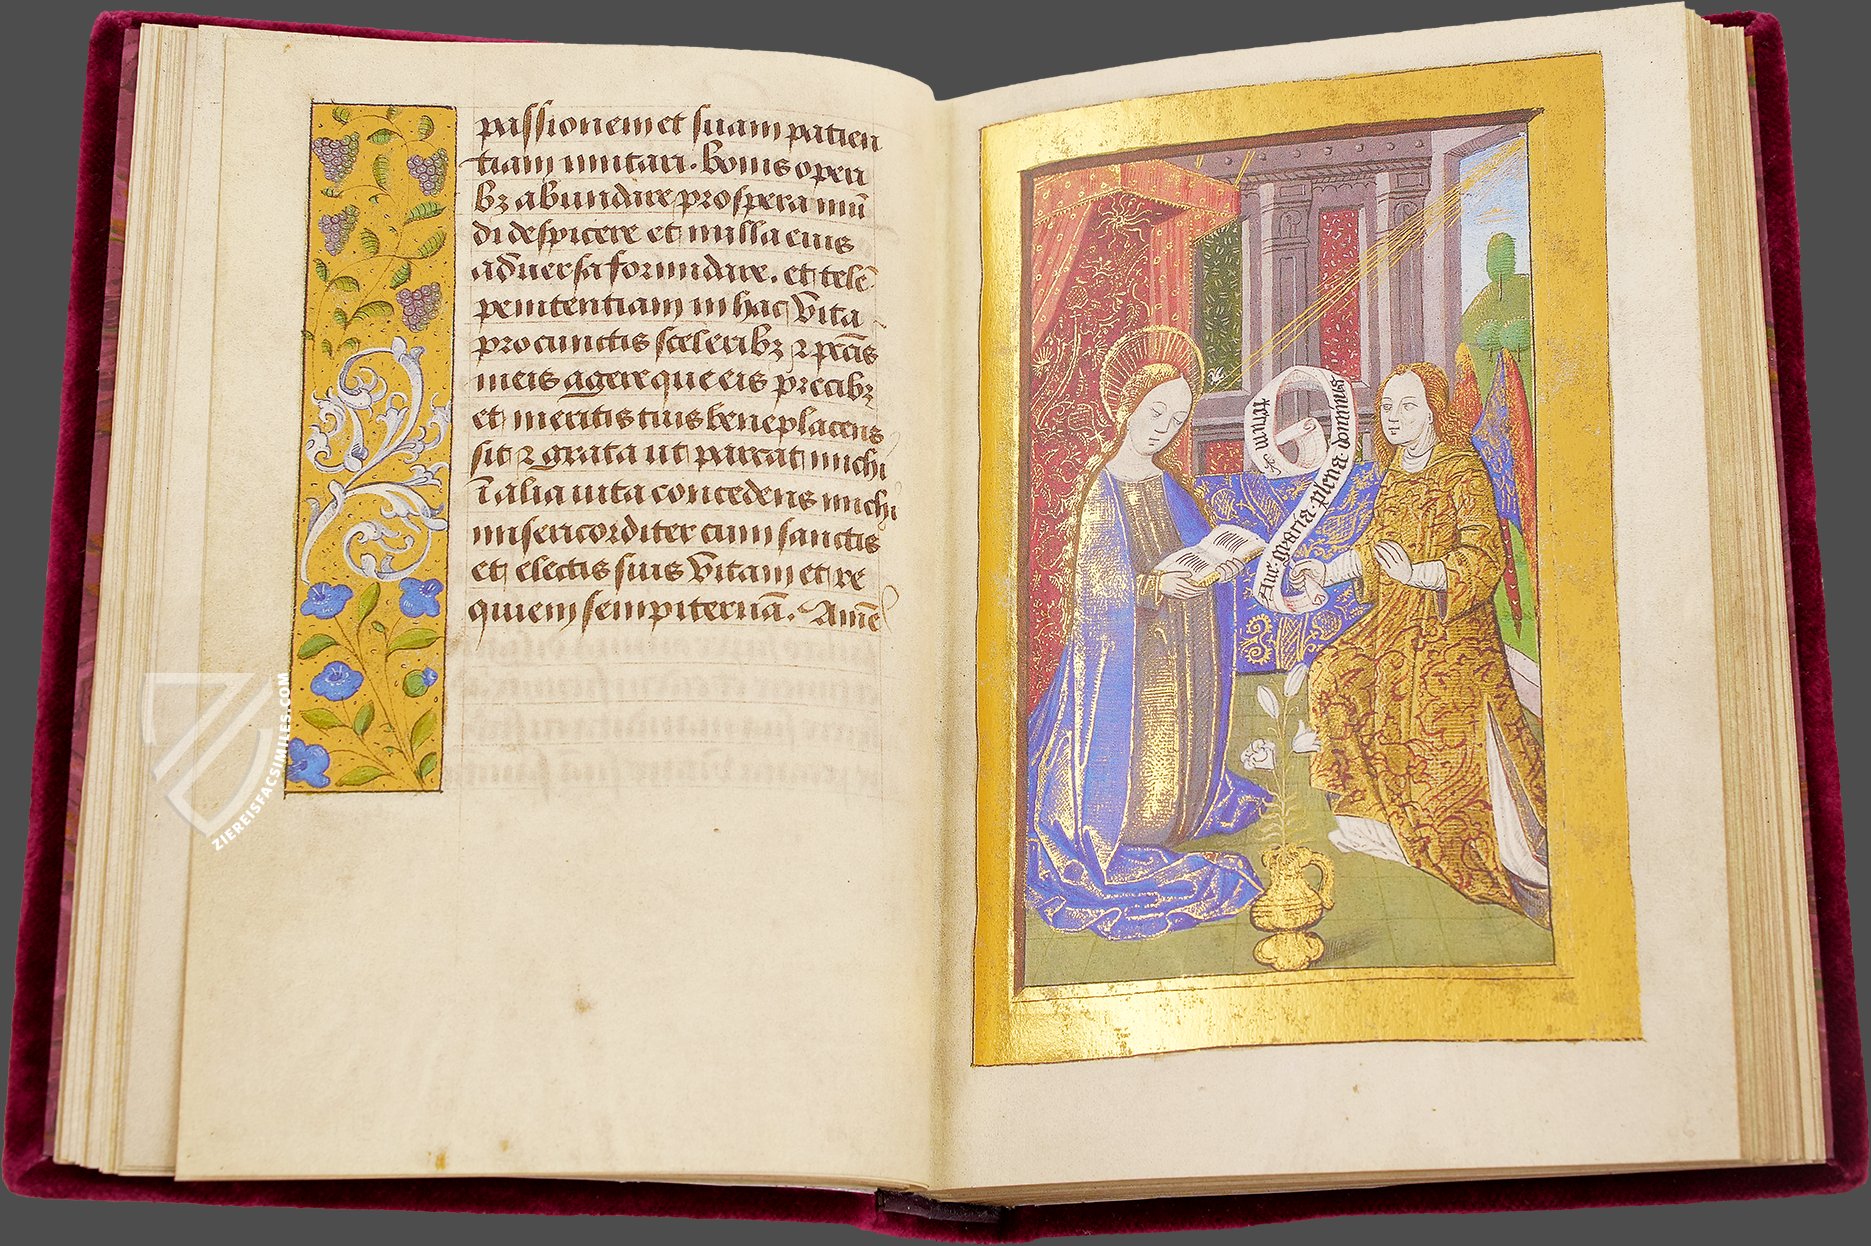 passionem et suam patien
tiam imitari. Bonis operi
bꝫ abundare prospera mū
di despicere et nulla eius
aduersa formidare. et talē
penitentiam in hac vita
pro cunctis sceleribꝫ ⁊ pctis
meis agere que eis precibꝫ
et meritis tuis beneplacens
sit ⁊ grata ut parcat michi
ī alia uita concedens michi
misericorditer cum sanctis
et electis suis vitam et re
quiem sempiternā. Amē
Aue. gracia. plena. dominus
tecum
ZIEREISFACSIMILES.COM